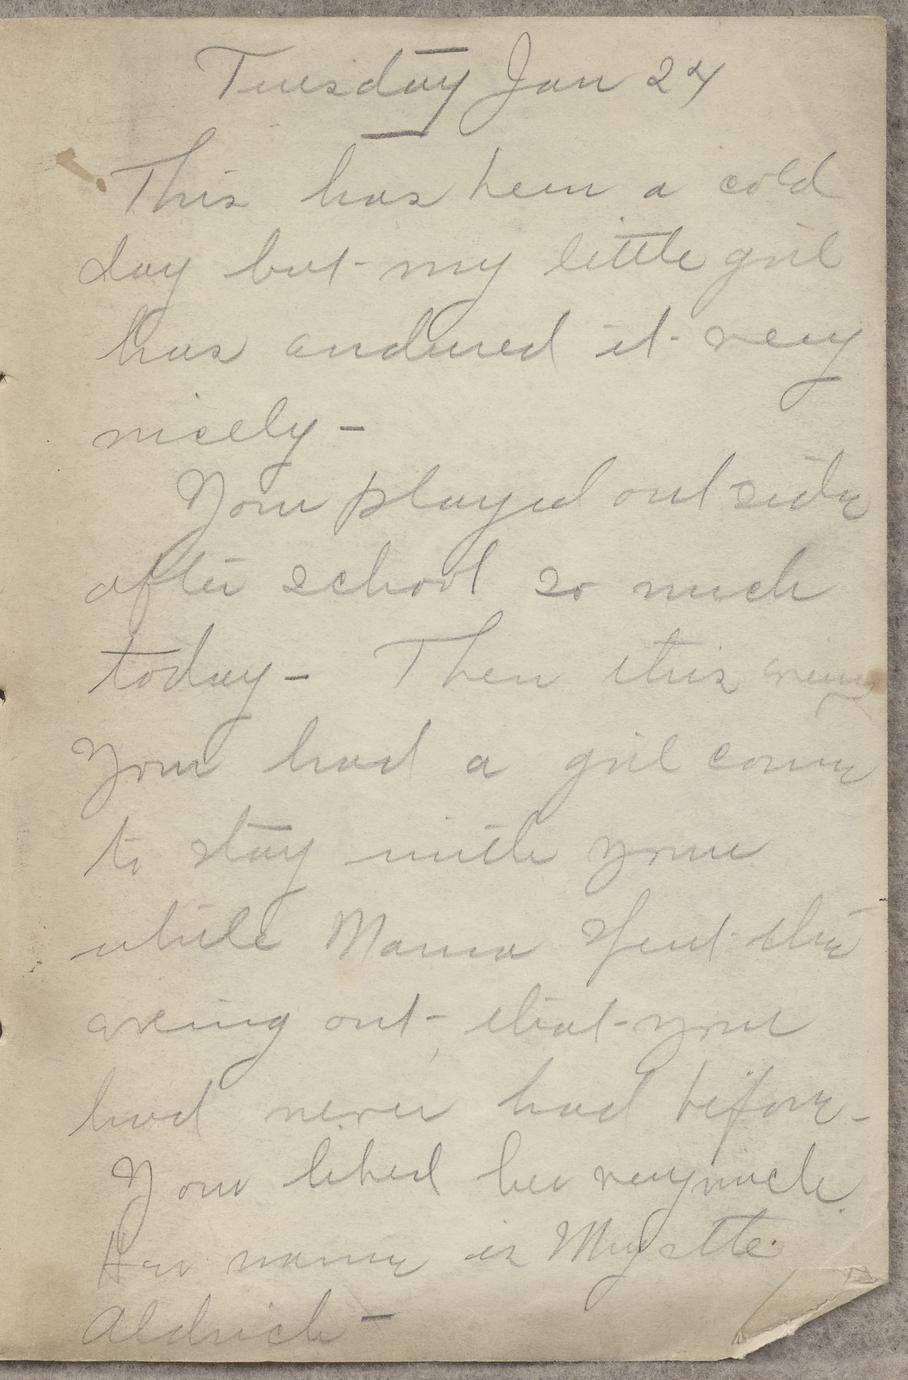 Tuesday Jan 24
This has been a cold
day but my little girl
has endured it very
nicely –
You played outside
after school so much
today – Then this evening
you had a girl come
to stay with you
while Mama spent the
evening out – that you
had never had before –
You liked her very much.
Her name is Myette
Aldrich –